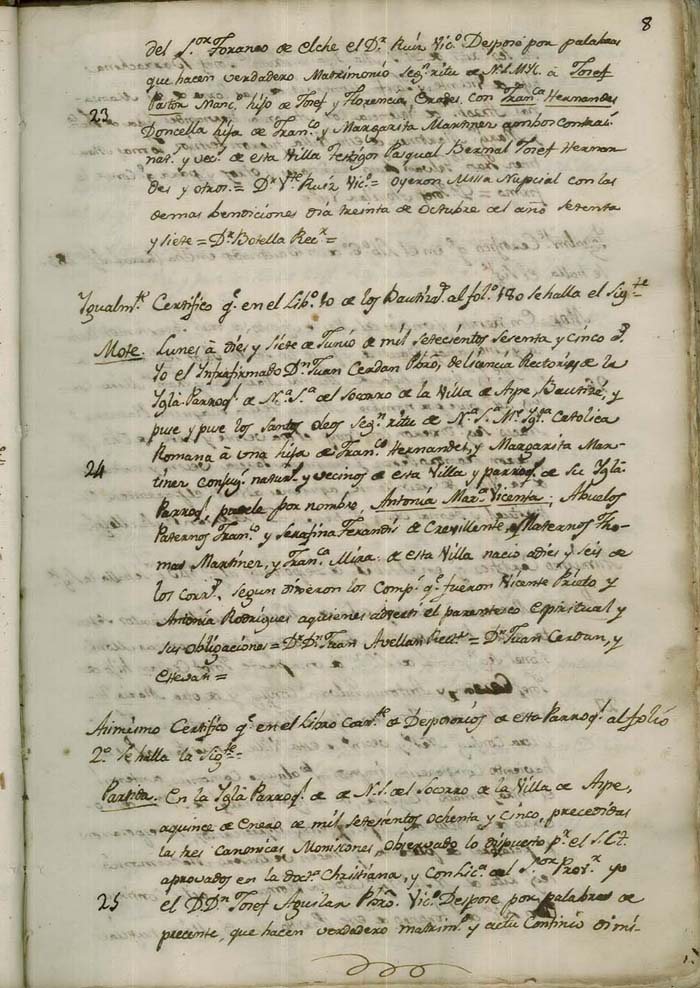 8
del S.or Foraneo de Elche el D.r Ruiz Vic.o Desposé por palabras
que hacen verdadero Matrimonio Seg.n ritu de N.S.M.Y.C. à Josef
Pastor Manc.o hijo de Josef y Florencia Erades, con Fran.ca Hernandes
23
Doncella hija de Fran.co y Margarita Martinez ambos contrai.
nat.s y vec.s de esta Villa Testigos Pasqual Bernal Josef Hernan
des y otros.= D.r V.te Ruiz Vic.o= oyeron Missa Nupcial con las
demas bendiciones dia treinta de Octubre del año setenta
y siete = D.r Botella Rec.r =
Ygualm.te Certifico q.e en el Lib.o 10 de los Bautizad.s al fol.o 180 se halla el Sig.te
Mote. Lunes à dies y siete de Junio de mil setecientos sesenta y cinco a.s
Yo el Infrafirmado D.n Juan Cerdan Pbro, de licencia Rectoris de la
Ygla Parroq.l de N.a S.a del Socorro de la Villa de Aspe, Bautizé, y
puse y puse los santos oleos seg.n ritu de N.a S.a M.e Ygl.a Catolica
Romana à una hija de Fran.co Hernandez, y Margarita Mar-
24
tinez conjug. natur.s y vecinos de esta Villa y parroq.s de su Ygla
Parroq.l pusele por nombre, Antonia Mar.a Vicenta; Abuelos
Paternos Fran.co y Serafina Ferandis de Crevillente, y Maternos Tho-
mas Martinez, y Fran.ca Mira de esta Villa nacio a dies y seis de
los Corr.s, segun dixeron los Comp.s q.e fueron Vicente Prieto y
Antonia Rodrigues aquienes adverti el parentesco Espiritual y
sus obligaciones = D.r D.n Juan Avellan Rect.r = D.r Juan Cerdan, y
Estevan =
Asimismo Certifico q.e en el Libro Corr.te de Desposorios de esta Parroq.l al folio
2.o se halla la Sig.te
Partida. En la Ygla Parroq.l de N.S. del Socorro de la Villa de Aspe,
a quince de Enero de mil setesientos ochenta y cinco, precedidas
las tres Canonicas Moniciones, observado lo dispuesto p.r el S.C.T.
aprovados en la doct.a Christiana, y con Lic.a del S.or Prov.r yo
25
el D.D.n Josef Aguilar Pbro. Vic.o Desposé por palabras de
precente, que hacen verdadero matrim.o y actu Continuo di mi-